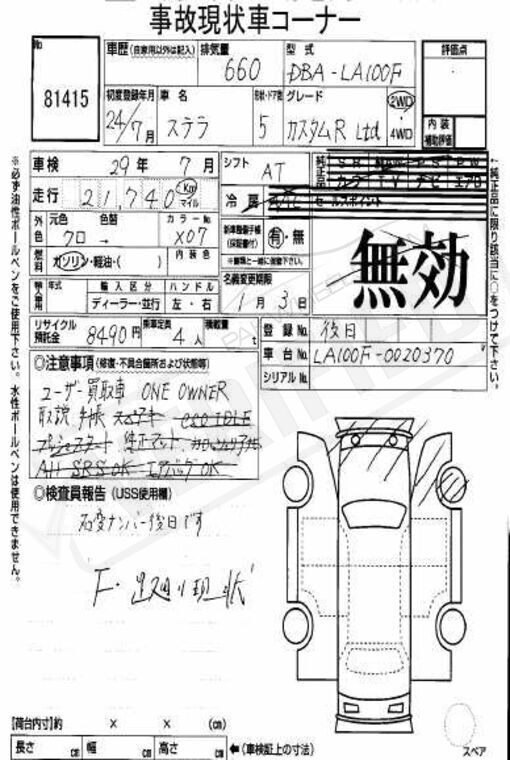 事故現状車コーナー
No
81415
車歴 (自家用以外は記入)
排気量 660
型式 DBA-LA100F
評価点
初度登録年月 24/7月
車名 ステラ
形状・ドア数 5
グレード カスタムR Ltd
2WD・4WD
内装補助評価
車検 29年 7月
シフト AT
純正品 SR PS PW
カワ TV ナビ エアロ
走行 21,740 Km マイル
冷房 A/C
セールスポイント
無効
外色 元色 色替 クロ→
カラーNo X07
内装色
新車整備手帳(保証書付) 有・無
※書類と一緒に後日でも可
燃料 ガソリン・軽油・( )
名義変更期限 1月3日
輸入車用 年式 輸入区分 ハンドル
ディーラー・並行 左・右
リサイクル預託金 8490円
乗車定員 4人
積載量 t
登録No. 後日
車台No. LA100F-0020370
シリアルNo.
◎注意事項 (修復・不具合箇所および状態等)
ユーザー買取車 ONE OWNER
取説 手帳 スペアキー eco IDLE
プッシュスタート 純正マット
All SRS OK エアバッグOK
◎検査員報告 (USS使用欄)
名変ナンバー後日です
F・足廻り現状
※必ず油性ボールペンをご使用下さい。水性ボールペンは使用できません。
←純正品に限り該当に○をつけて下さい。
【荷台内寸】約 × × (cm)
長さ cm 幅 cm 高さ cm ←(車検証上の寸法)
スペア